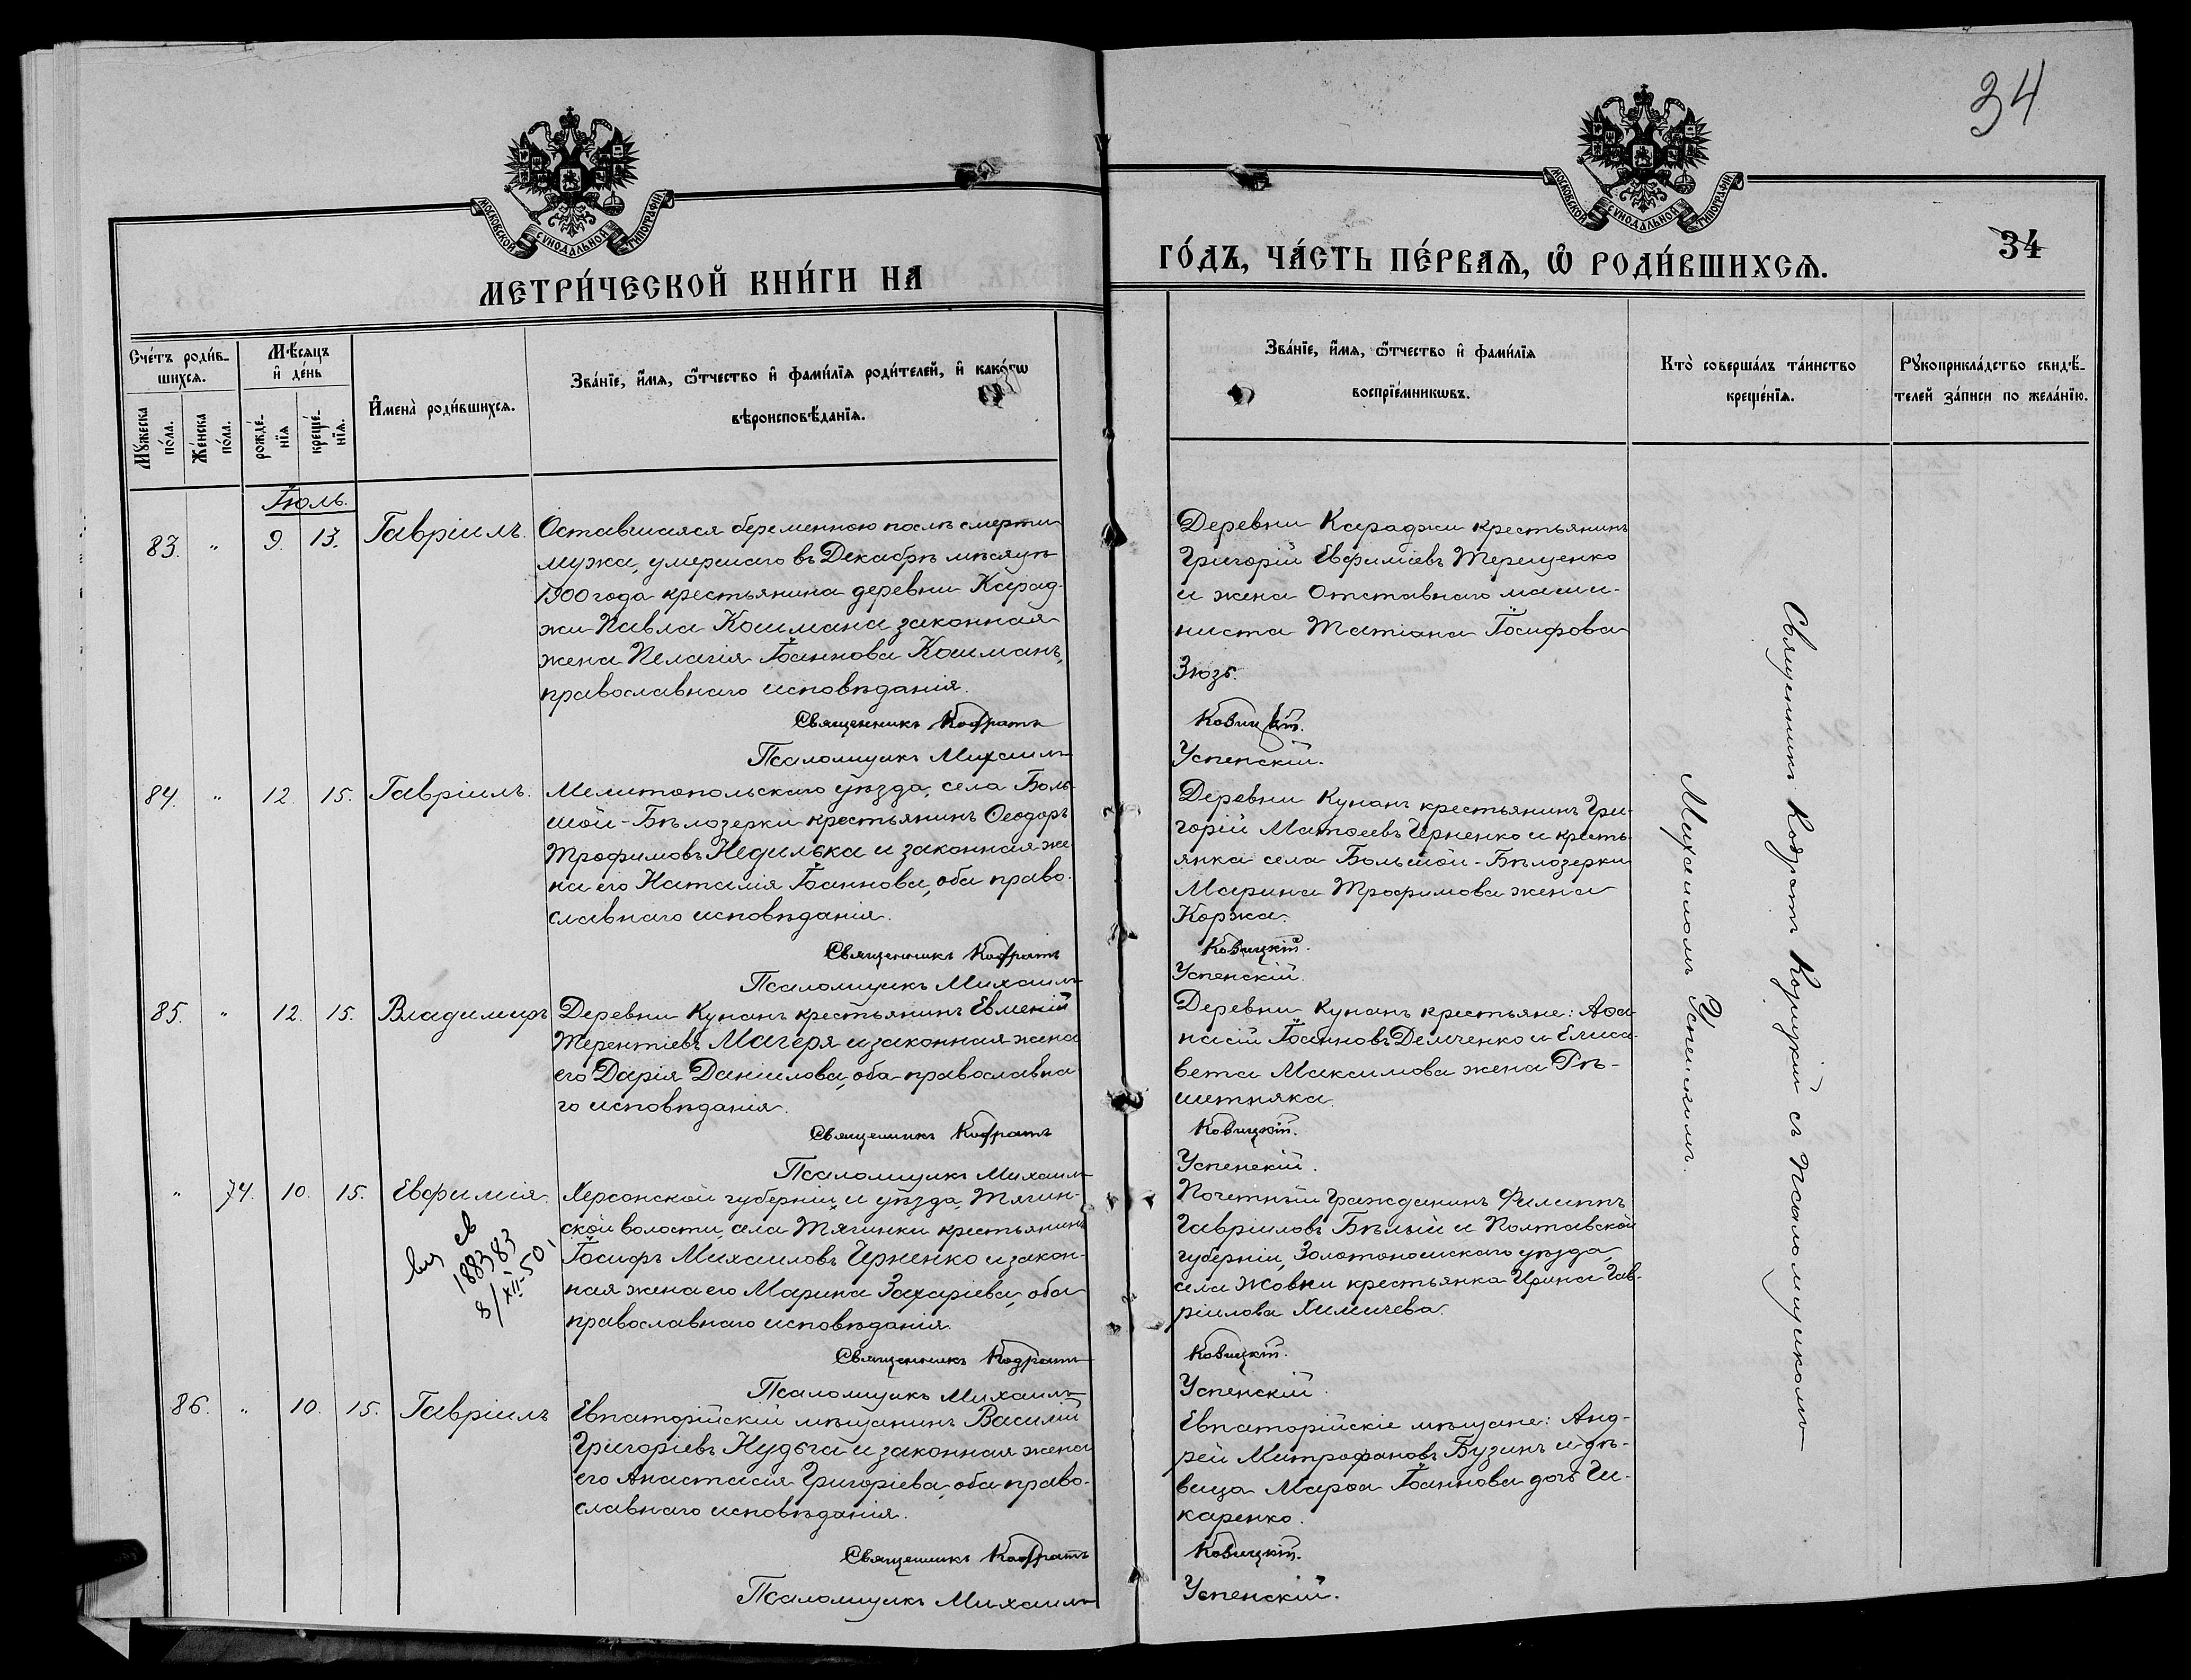 34
МОСКОВСКОЙ СУНОДАЛЬНОЙ ТИПОГРАФІИ
МЕТРИ́ЧЕСКОЙ КНИ́ГИ НА
МОСКОВСКОЙ СУНОДАЛЬНОЙ ТИПОГРАФІИ
ГО́ДЪ, ЧА́СТЬ ПЕ́РВАЯ, Ѡ РОДИ́ВШИХСЯ.
34
Сче́тъ роди́в-
шихся.
Мꙋ́жеска
по́ла.
Же́нска
по́ла.
Мѣ́сяцъ
и҆ де́нь
рожде́-
нїя
креще́-
нїя.
И҆мена̀ роди́вшихся.
Зва́нїе, и҆́мя, ѻ҆́тчество и҆ фами́лїя роди́телей, и҆ како́гѡ
вѣроисповѣ́данїя.
Зва́нїе, и҆́мя, ѻ҆́тчество и҆ фами́лїя
воспрїе́мникѡвъ.
Кто̀ соверша́лъ та́инство
креще́нїя.
Рꙋкоприкла́дство свидѣ́-
телей за́писи по жела́нїю.
Іюль.
83. " 9. 13. Гавріилъ.
Оставшаяся беременною послѣ смерти
мужа, умершаго въ Декабрѣ мѣсяцѣ
1900 года крестьянина деревни Карад-
жи Павла Кошмана законная
жена Пелагія Іоаннова Кошманъ,
православнаго исповѣданія.
Священникъ Кодратъ
Псаломщикъ Михаилъ
Деревни Караджи крестьянинъ
Григорій Евфиміевъ Терещенко
и жена Отставнаго маши-
ниста Татіана Іосифова
Зюзь.
Ковицкій.
Успенскій.
84. " 12. 15. Гавріилъ.
Мелитопольскаго уѣзда, села Боль-
шой-Бѣлозерки крестьянинъ Ѳеодоръ
Трофимовъ Недилька и законная же
на его Наталія Іоаннова, оба право-
славнаго исповѣданія.
Священникъ Кодратъ
Псаломщикъ Михаилъ
Деревни Кунанъ крестьянинъ Гри-
горій Матѳеевъ Черненко и кресть-
янка села Большой-Бѣлозерки
Марина Трофимова жена
Коржа.
Ковицкій.
Успенскій.
85. " 12. 15. Владимиръ
Деревни Кунанъ крестьянинъ Евменій
Терентіевъ Магеря и законная жена
его Дарія Даніилова, оба православна
го исповѣданія.
Священникъ Кодратъ
Псаломщикъ Михаилъ
Деревни Кунанъ крестьяне: Аѳа-
насій Іоанновъ Демченко и Елиса-
вета Максимова жена Рѣ-
шетняка.
Ковицкій.
Успенскій.
" 74. 10. 15. Евфимія.
188383
8/XII-50
Херсонской губерніи и уѣзда, Тягин-
ской волости, села Тягинки крестьянинъ
Іосифъ Михаиловъ Черненко и закон-
ная жена его Марина Захаріева, оба
православнаго исповѣданія.
Священникъ Кодратъ
Псаломщикъ Михаилъ
Почетный Гражданинъ Филиппъ
Гавріиловъ Бѣлый и Полтавской
губерніи, Золотоношскаго уѣзда,
села Жовни крестьянка Ирина Гав-
ріилова Химичева
Ковицкій.
Успенскій.
86. " 10. 15. Гавріилъ
Евпаторійскій мѣщанинъ Василій
Григоріевъ Кудьга и законная жена
его Анастасія Григоріева, оба право-
славнаго исповѣданія.
Священникъ Кодратъ
Псаломщикъ Михаилъ
Евпаторійскіе мѣщане: Анд-
рей Митрофановъ Бузинъ и дѣ-
вица Марѳа Іоаннова дочь Ши-
каренко.
Ковицкій.
Успенскій.
Священникъ Кодратъ Ковицкій съ псаломщикомъ
Михаиломъ Успенскимъ.